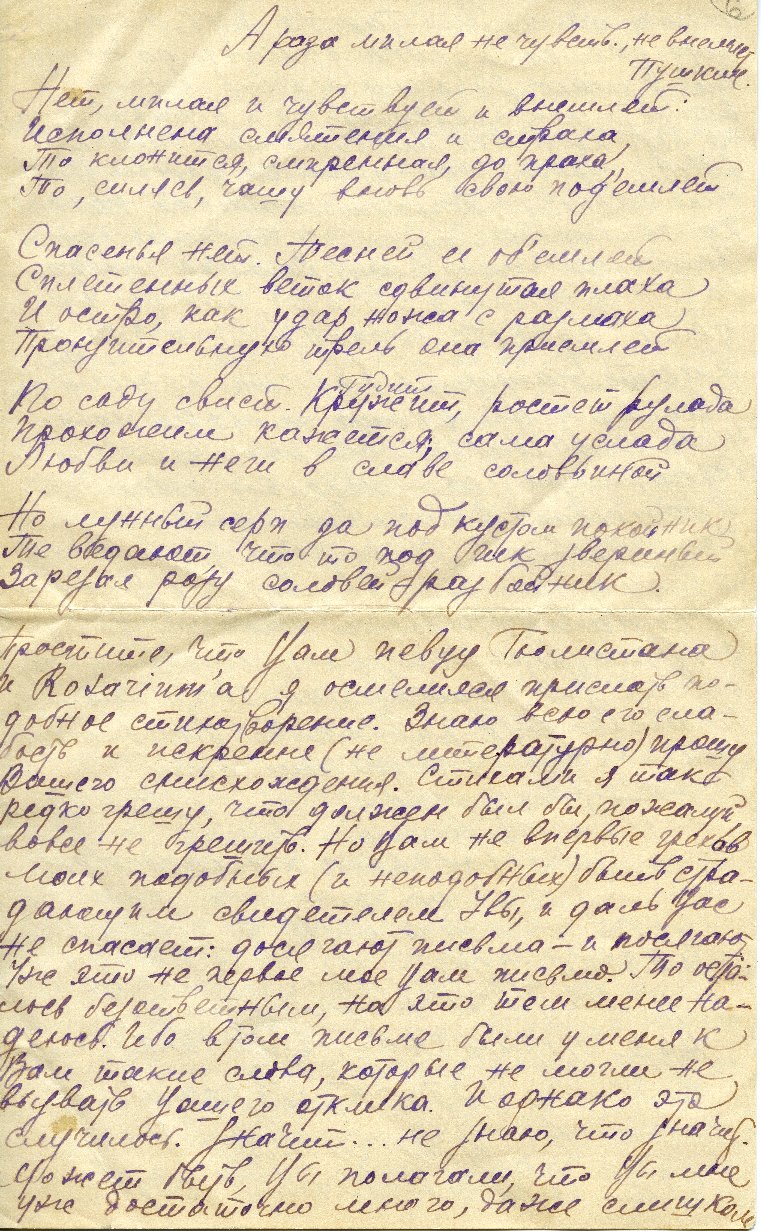 А роза милая не чувств., не внемлет
Пушкин.
Нет, милая и чувствует и внемлет:
Исполнена смятения и страха,
То клонится, смиренная, до праха,
То, силясь, чашу вновь свою под'емлет
Спасенья нет. Тесней ее об'емлет
Сплетенных веток сдвинутая плаха
И остро, как удар ножа с размаха,
Пронзительную трель она приемлет
По саду свист. Гудит
Кружит, ростет рулада
Прохожим кажется, сама услада
Любви и неги в славе соловьиной
Но лунный серп да под кустом покойник
Те ведают что то под зык звериный
Зарезал розу соловей-разбойник.
Простите, что Вам певцу Гюлистана
и Rosarium'а я осмелился прислать по-
добное стихотворение. Знаю всю его сла-
бость и искренне (не литературно) прошу
Вашего снисхождения. Стихами я так
редко грешу, что должен был бы, пожалуй
вовсе не грешить. Но Вам не впервые грехов
моих подобных (и неподобных) быть стра-
дающим свидетелем Увы, и даль Вас
не спасает: досягают письма – и посягают
Уже это не первое мое Вам письмо. То оста-
лось безответным, на это тем менее на-
деюсь. Ибо в том письме были у меня к
Вам такие слова, которые не могли не
вызвать Вашего отклика. И однако это
случилось. Значит... не знаю, что значит.
Может быть, Вы полагали, что Вы мне
уж достаточно много, даже слишком